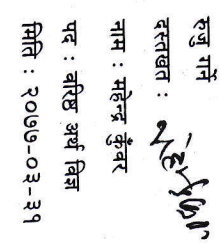 रुजु गर्ने
दस्तखत :
नाम : महेन्द्र कुँवर
पद : वरिष्ठ अर्थ विज्ञ
मिति : २०७७-०३-३१